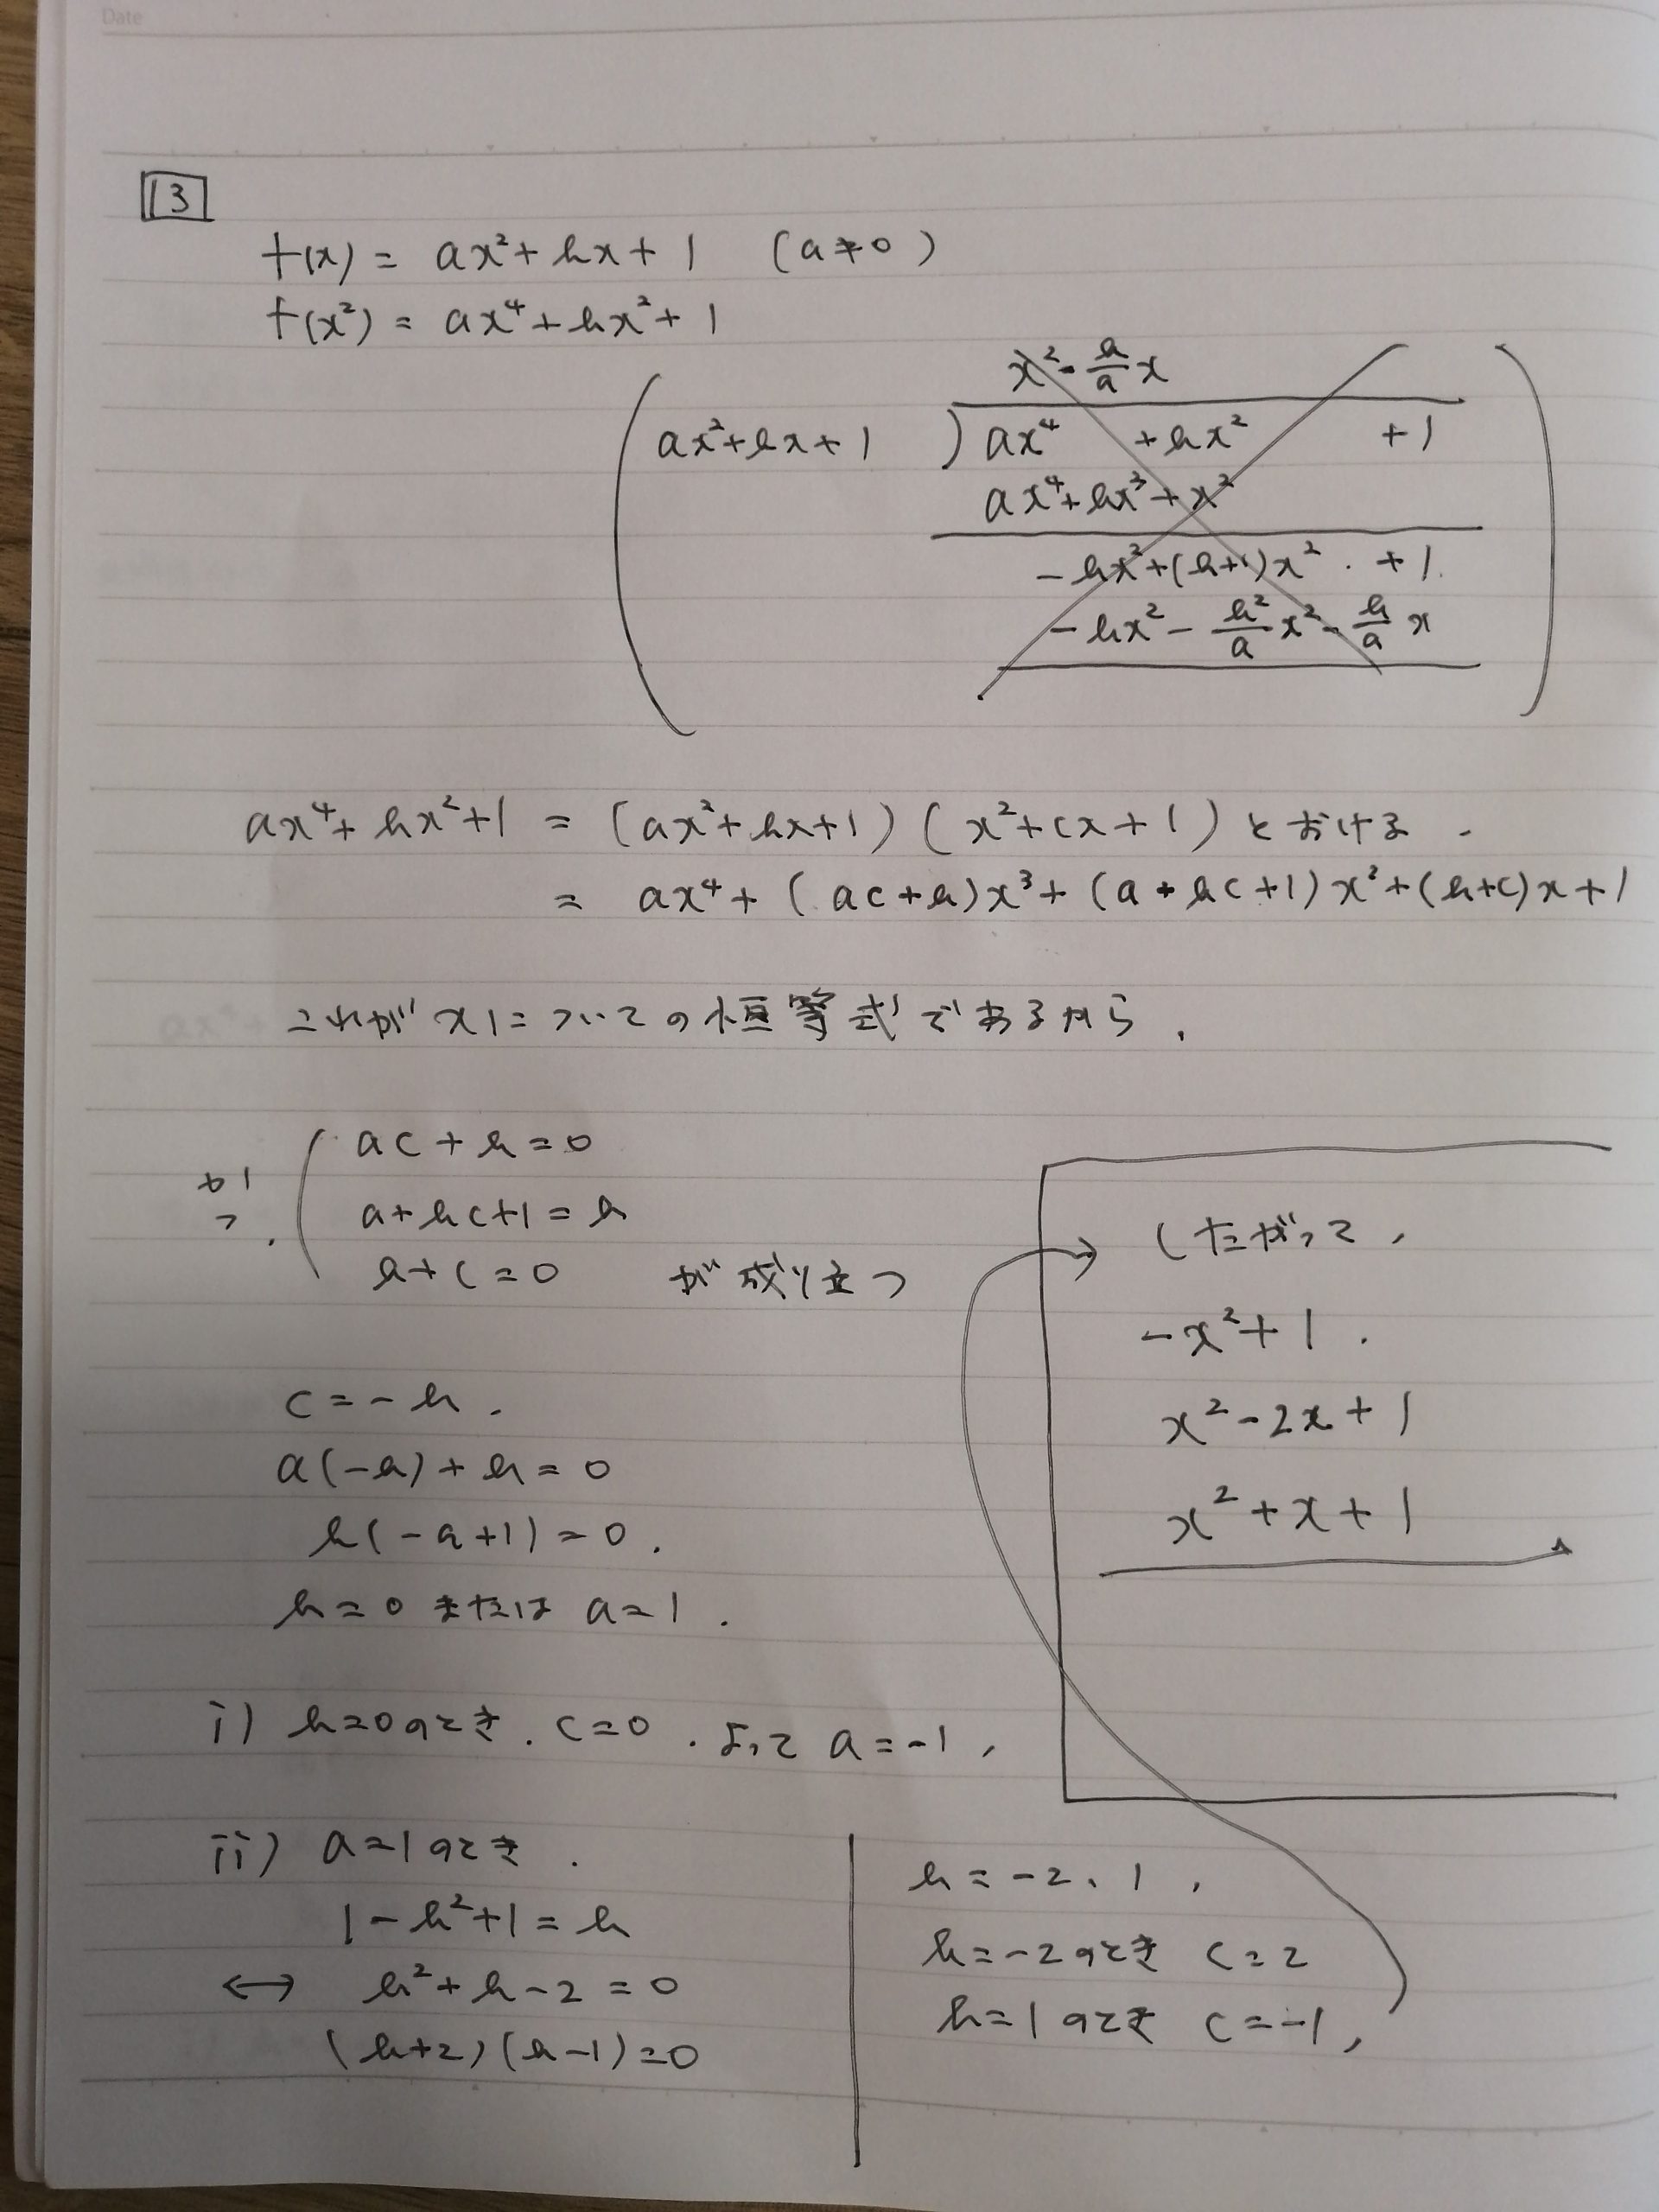 Date
13
f(x) = ax²+bx+1 (a≠0)
f(x²) = ax⁴+bx²+1
x²-b/a x
ax²+bx+1 ) ax⁴ +bx² +1
ax⁴+bx³+x²
-bx²+(b+1)x² +1
-bx²-b²/a x²-b/a x
ax⁴+bx²+1 = (ax²+bx+1)(x²+cx+1) とおける.
= ax⁴+(ac+b)x³+(a+bc+1)x²+(b+c)x+1
これがxについての恒等式であるから,
ac+b=0
a+bc+1=b
b+c=0 が成り立つ
c=-b.
a(-b)+b=0
b(-a+1)=0.
b=0 または a=1.
i) b=0のとき. c=0. よって a=-1,
ii) a=1のとき.
1-b²+1=b
↔ b²+b-2=0
(b+2)(b-1)=0
b=-2、1,
b=-2のとき c=2
b=1のとき c=-1,
したがって,
-x²+1.
x²-2x+1
x²+x+1